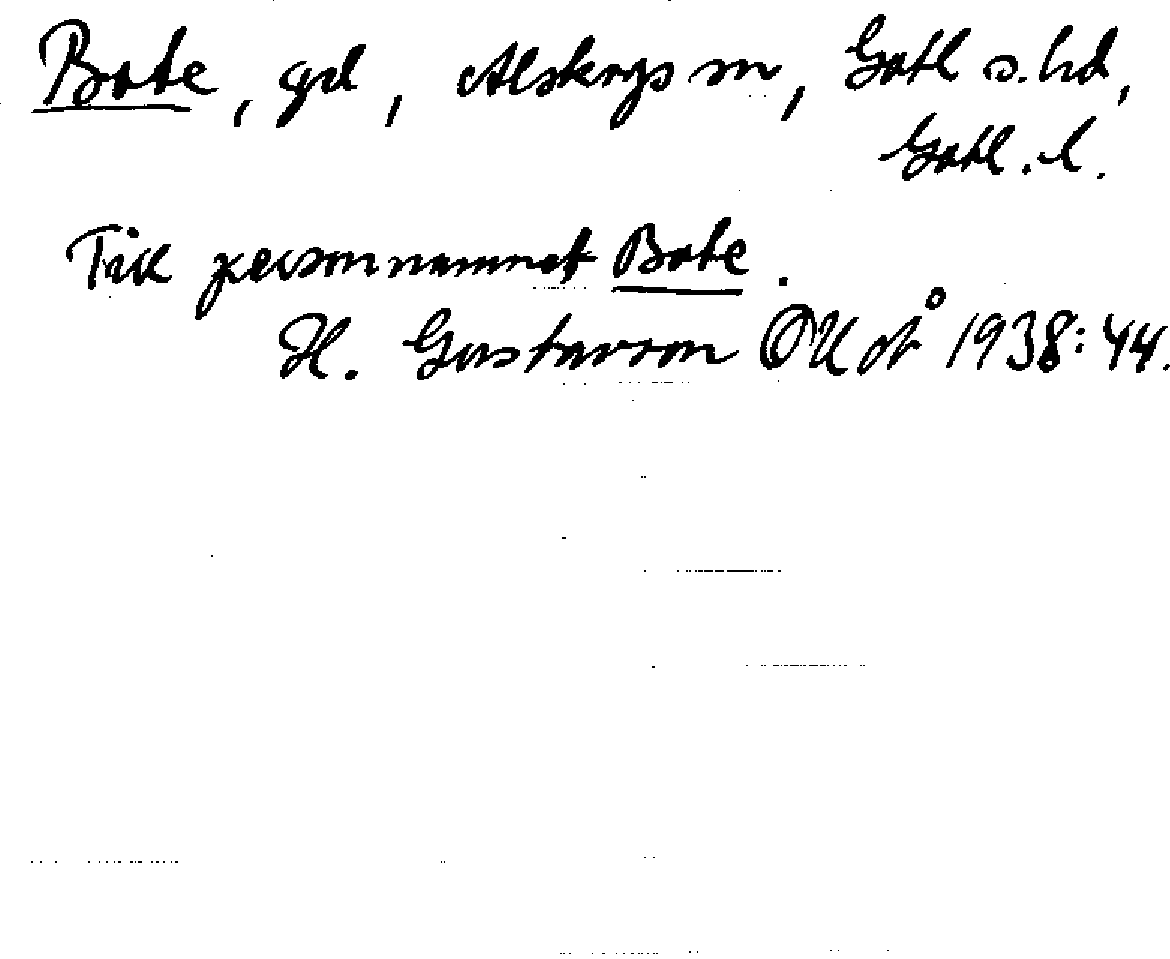 Bote, gd, Alskogs sn, Gotl s. hd,
Gotl. l.
Till personnamnet Bote.
H. Gustavson OUÅ 1938:44.